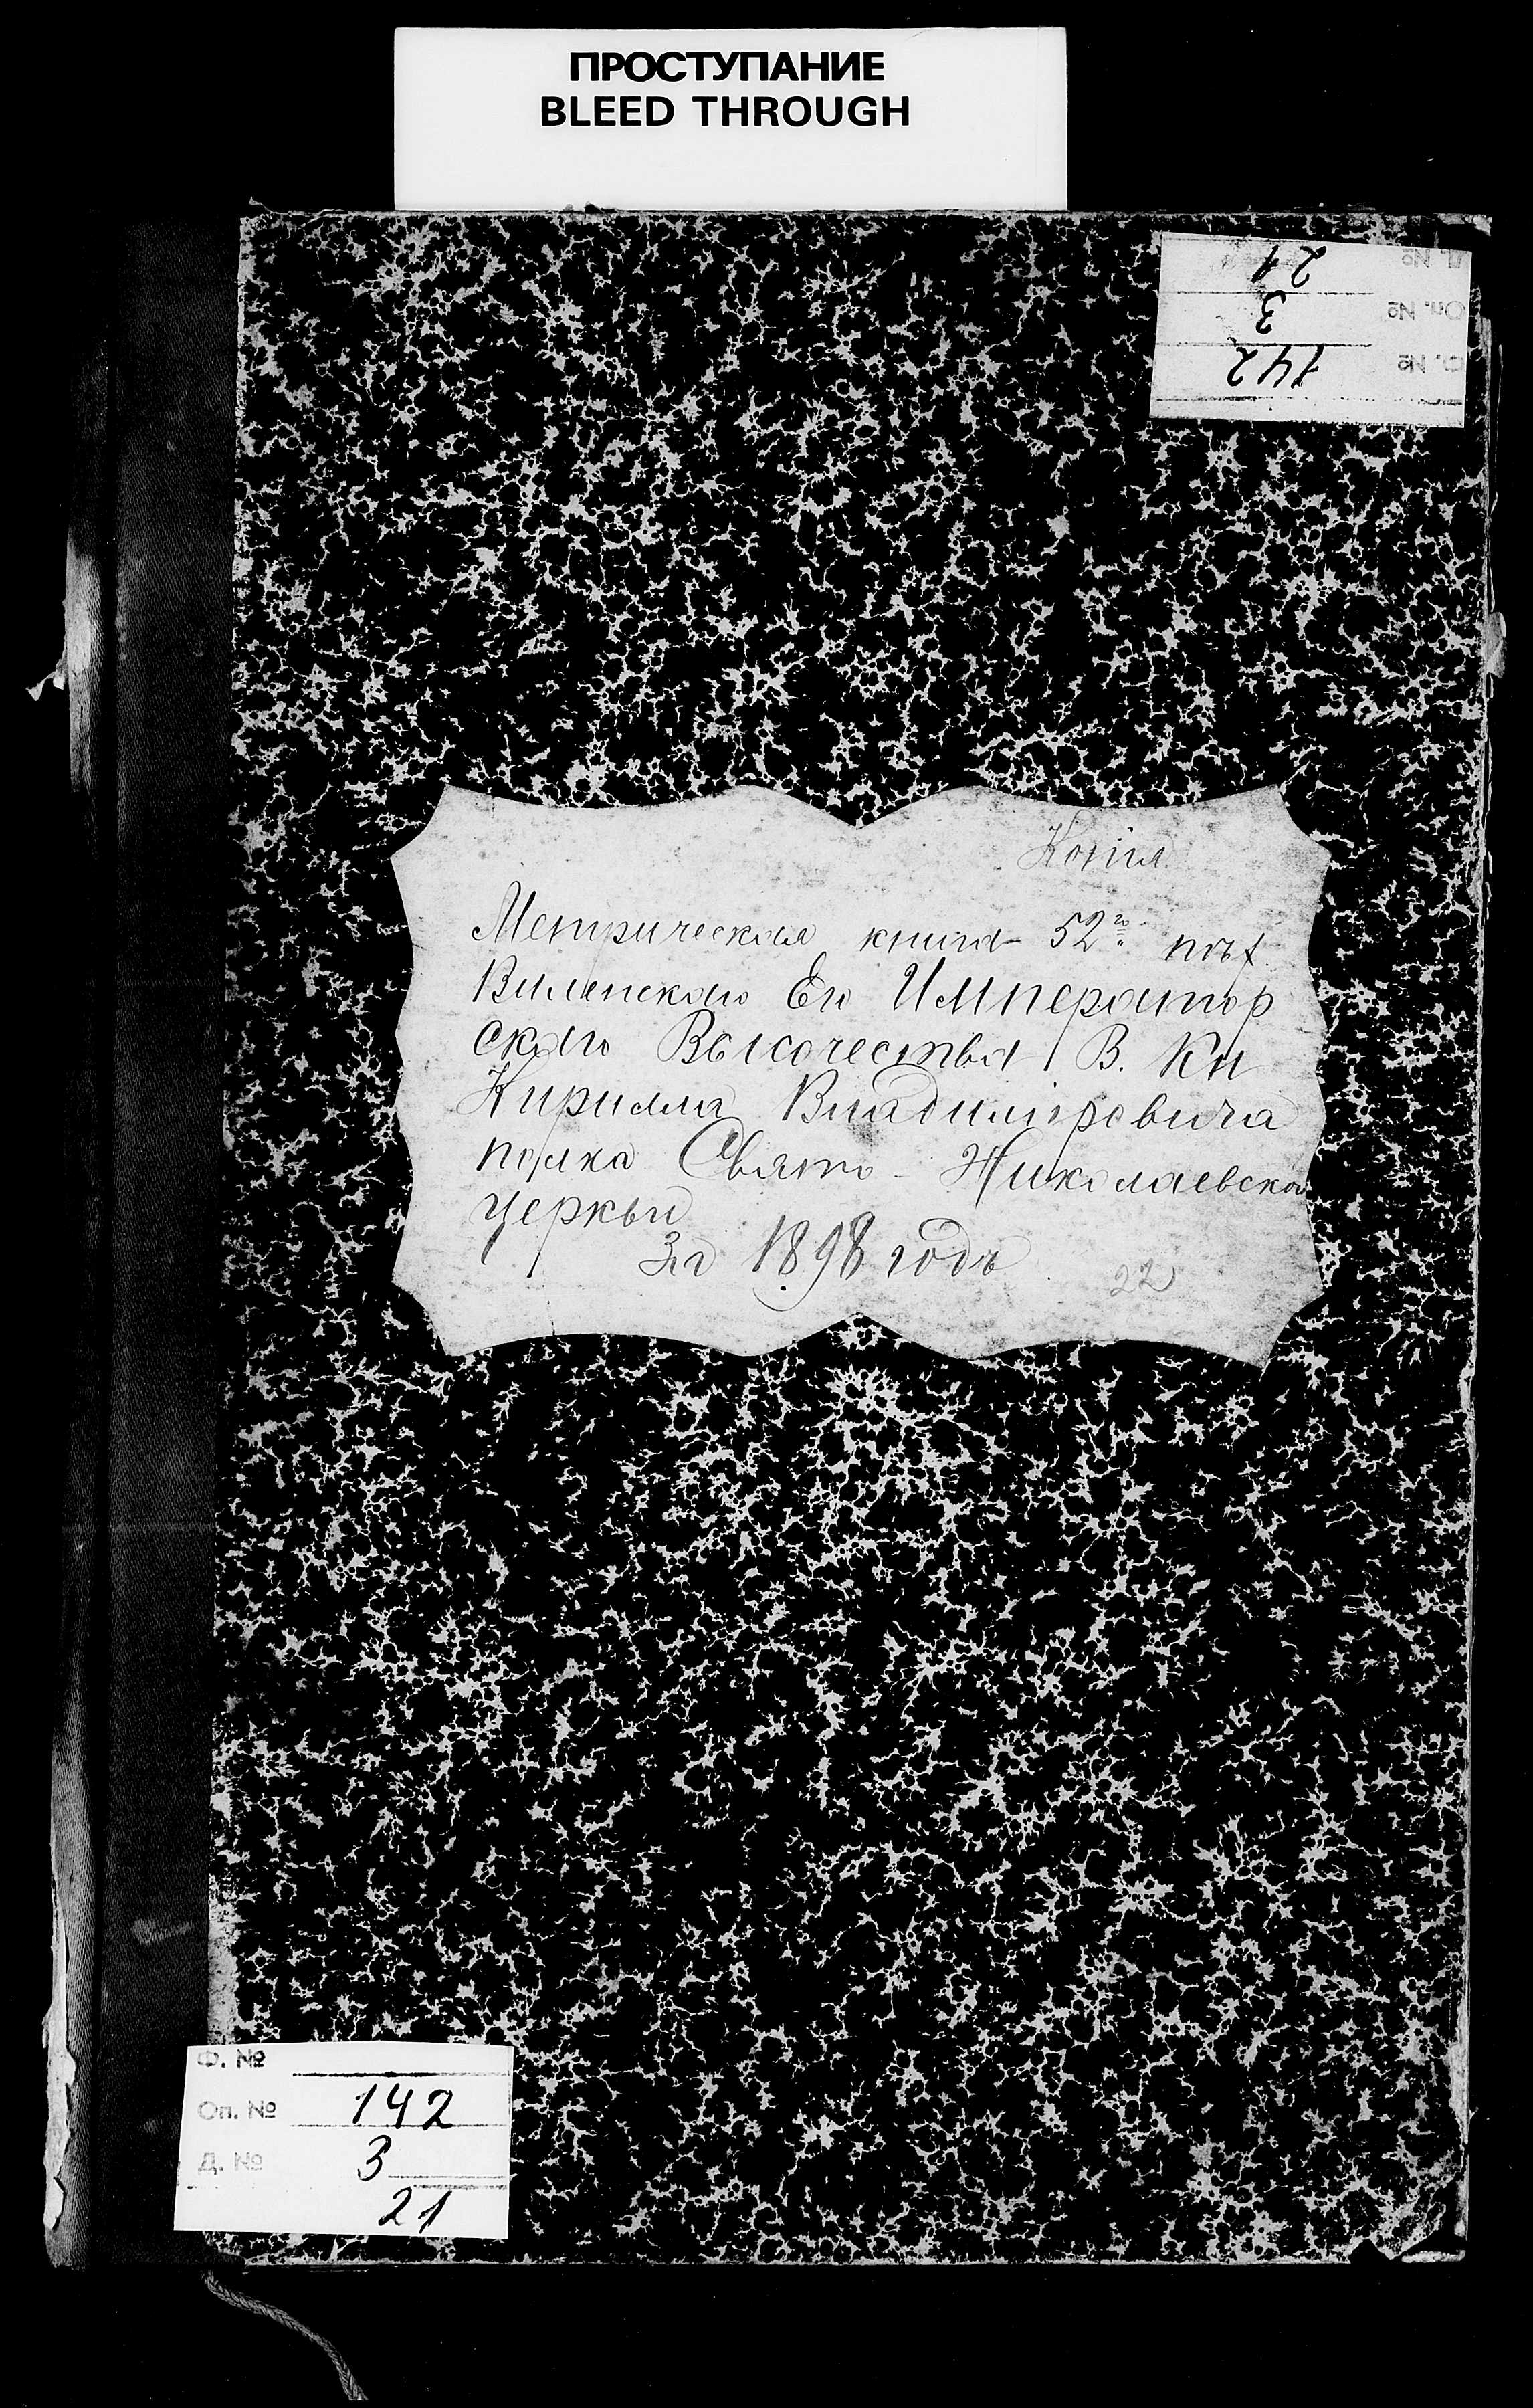 ПРОСТУПАНИЕ
BLEED THROUGH
Д. № 21
Оп. № 3
Ф. № 142
Копія
Метрическая книга 52го пѣх.
Виленскаго Его Император
скаго Высочества В. Кн
Кирилла Владиміровича
полка Свято-Николаевской
церкви
За 1898 годъ
22
Ф. №
Оп. № 142
Д. № 3
21